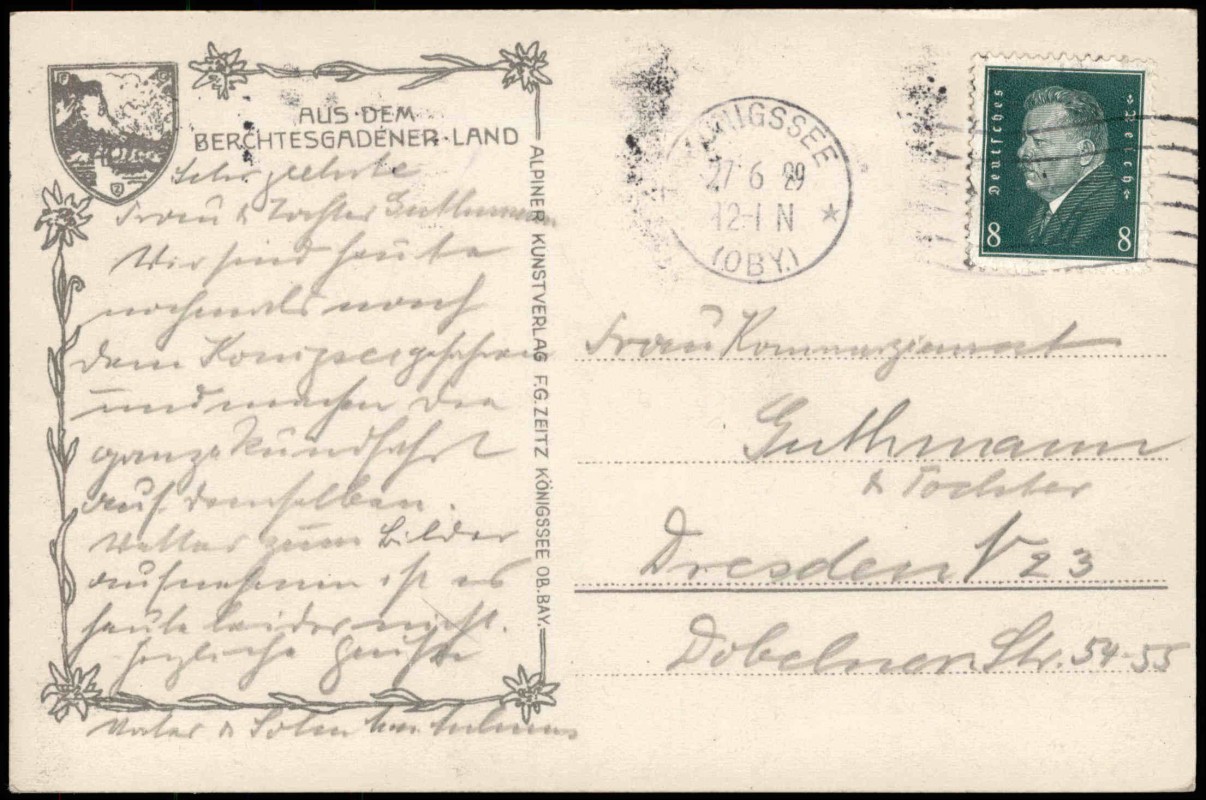 AUS·DEM
BERCHTESGADENER·LAND
Sehr geehrte
Frau & Tochter Guthmann
Wir sind heute
nochmals nach
dem Königsee gefahren
und machen die
ganze Rundfahrt
auf demselben.
Wetter zum Bilder
aufnehmen ist es
heute leider nicht.
Herzliche Grüße
Vater & Sohn
ALPINER KUNSTVERLAG F.G. ZEITZ KÖNIGSSEE OB. BAY.
KÖNIGSSEE
27 6 29
12-1 N
(OBY.)
Deutsches
Reich
8 8
Frau Kommerzienrat
Guthmann
& Tochter
Dresden N 23
Döbelner Str. 54-55